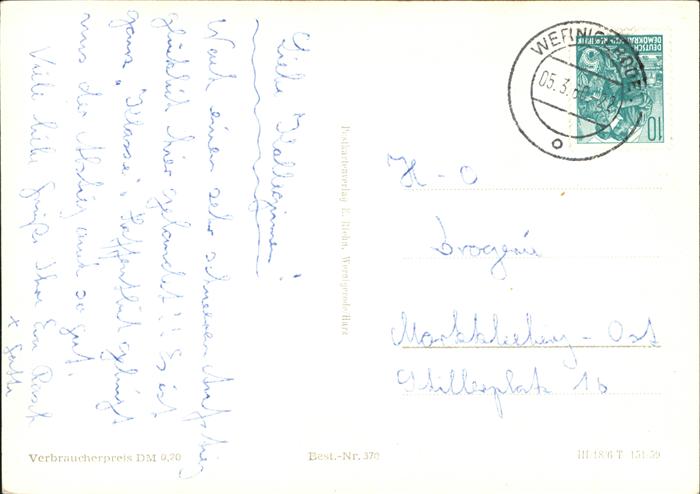 Liebe Kolleginnen!
Nach einem sehr schweren Aufstieg
glücklich hier gelandet!! Es ist
ganz "Klasse". Hoffentlich gelingt
uns der Abstieg auch so gut.
Viele liebe Grüße Ihre Eva
+ Gatte
Postkartenverlag E. Riehn, Wernigerode/Harz
WERNIGERODE
05.3.60
DEUTSCHE
DEMOKRATISCHE REPUBLIK
10
H-O
Drogerie
Markkleeberg-Ost
Stillerplatz 1b
Verbraucherpreis DM 0,20
Best.-Nr. 370
III 18/6 T 151 59